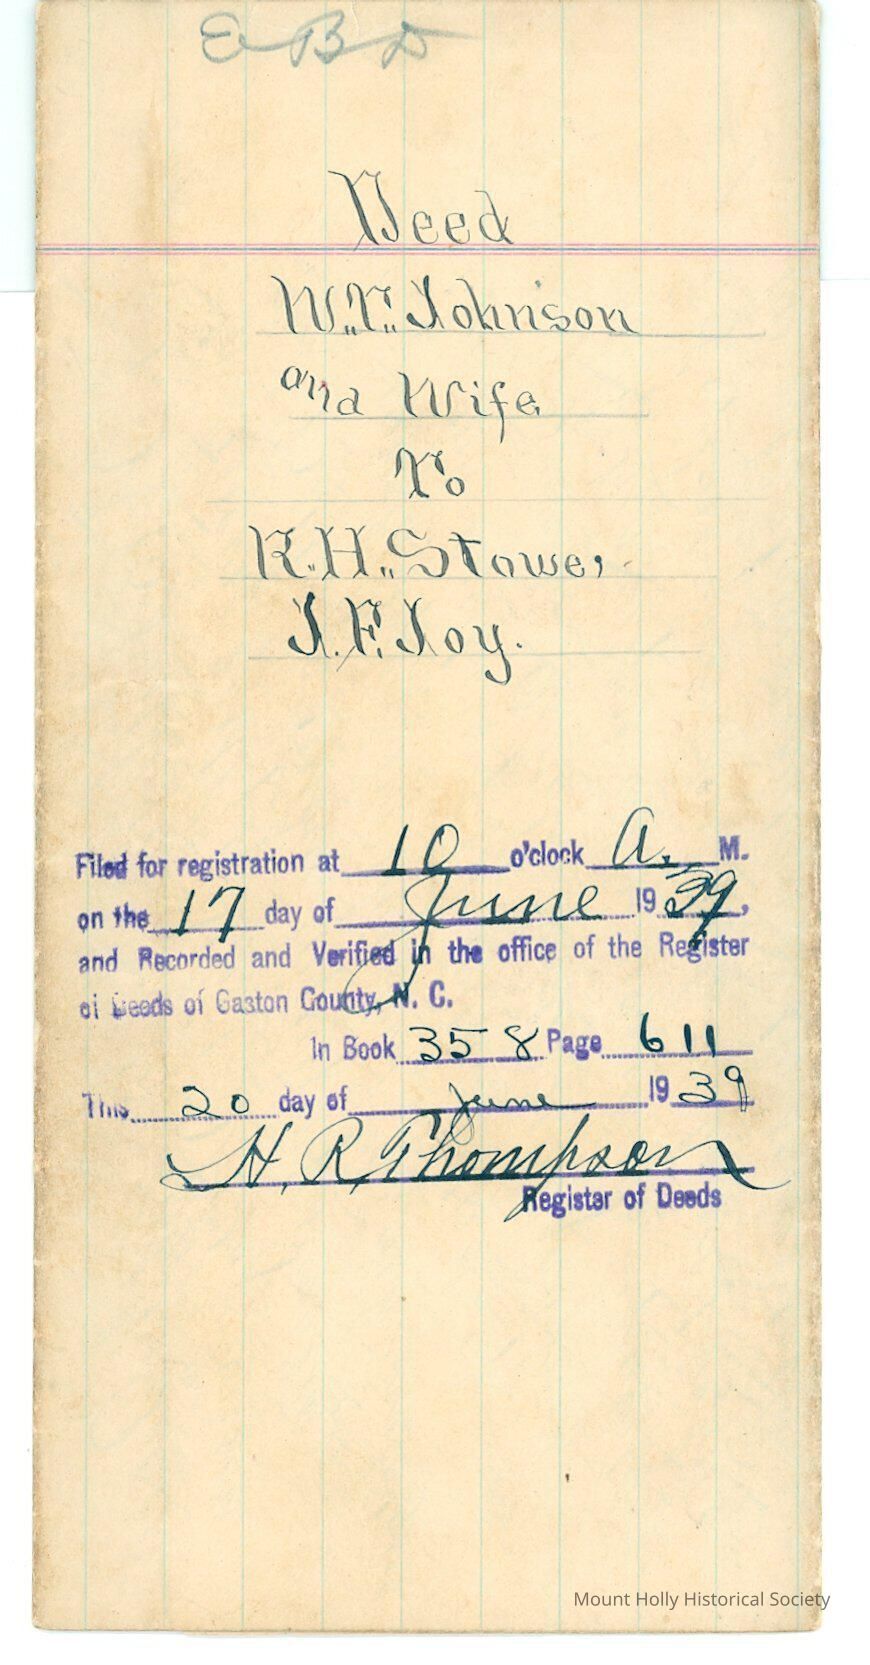 E B D
Deed
W.T. Johnson
and Wife
To
R.H. Stowe,
J.F. Joy.
Filed for registration at 10 o'clock A. M.
on the 17 day of June 1939,
and Recorded and Verified in the office of the Register
of Deeds of Gaston County, N. C.
In Book 358 Page 611
This 20 day of June 1939
H. R. Thompson
Register of Deeds
Mount Holly Historical Society